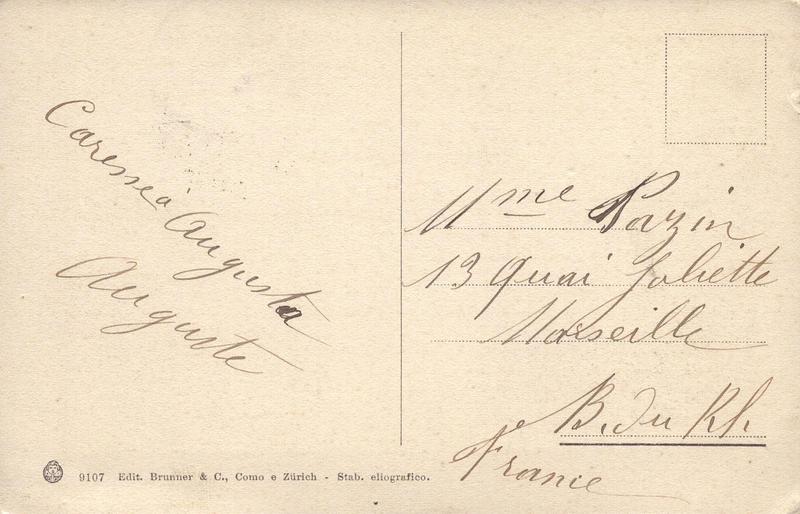 Caresse à Augusta
Auguste
Mme Pazin
13 Quai Joliette
Marseille
B. du Rh.
France
9107 Edit. Brunner & C., Como e Zürich - Stab. eliografico.